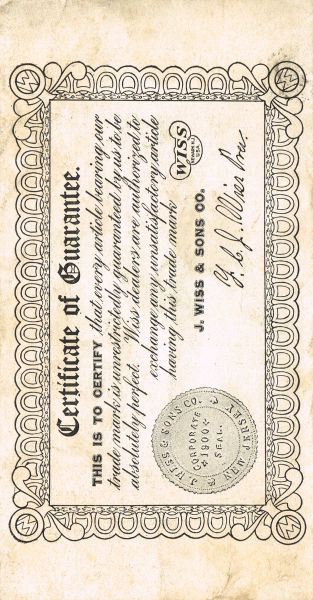 Certificate of Guarantee.
THIS IS TO CERTIFY that every article bearing our
trade mark is unrestrictedly guaranteed by us to be
absolutely perfect. Wiss dealers are authorized to
exchange any unsatisfactory article
having this trade mark
WISS
NEWARK N.J.
USA
J. WISS & SONS CO.
F. C. J. Wiss Pres.
J. WISS & SONS CO.
NEW JERSEY
CORPORATE
1900
SEAL
W
W
W
W